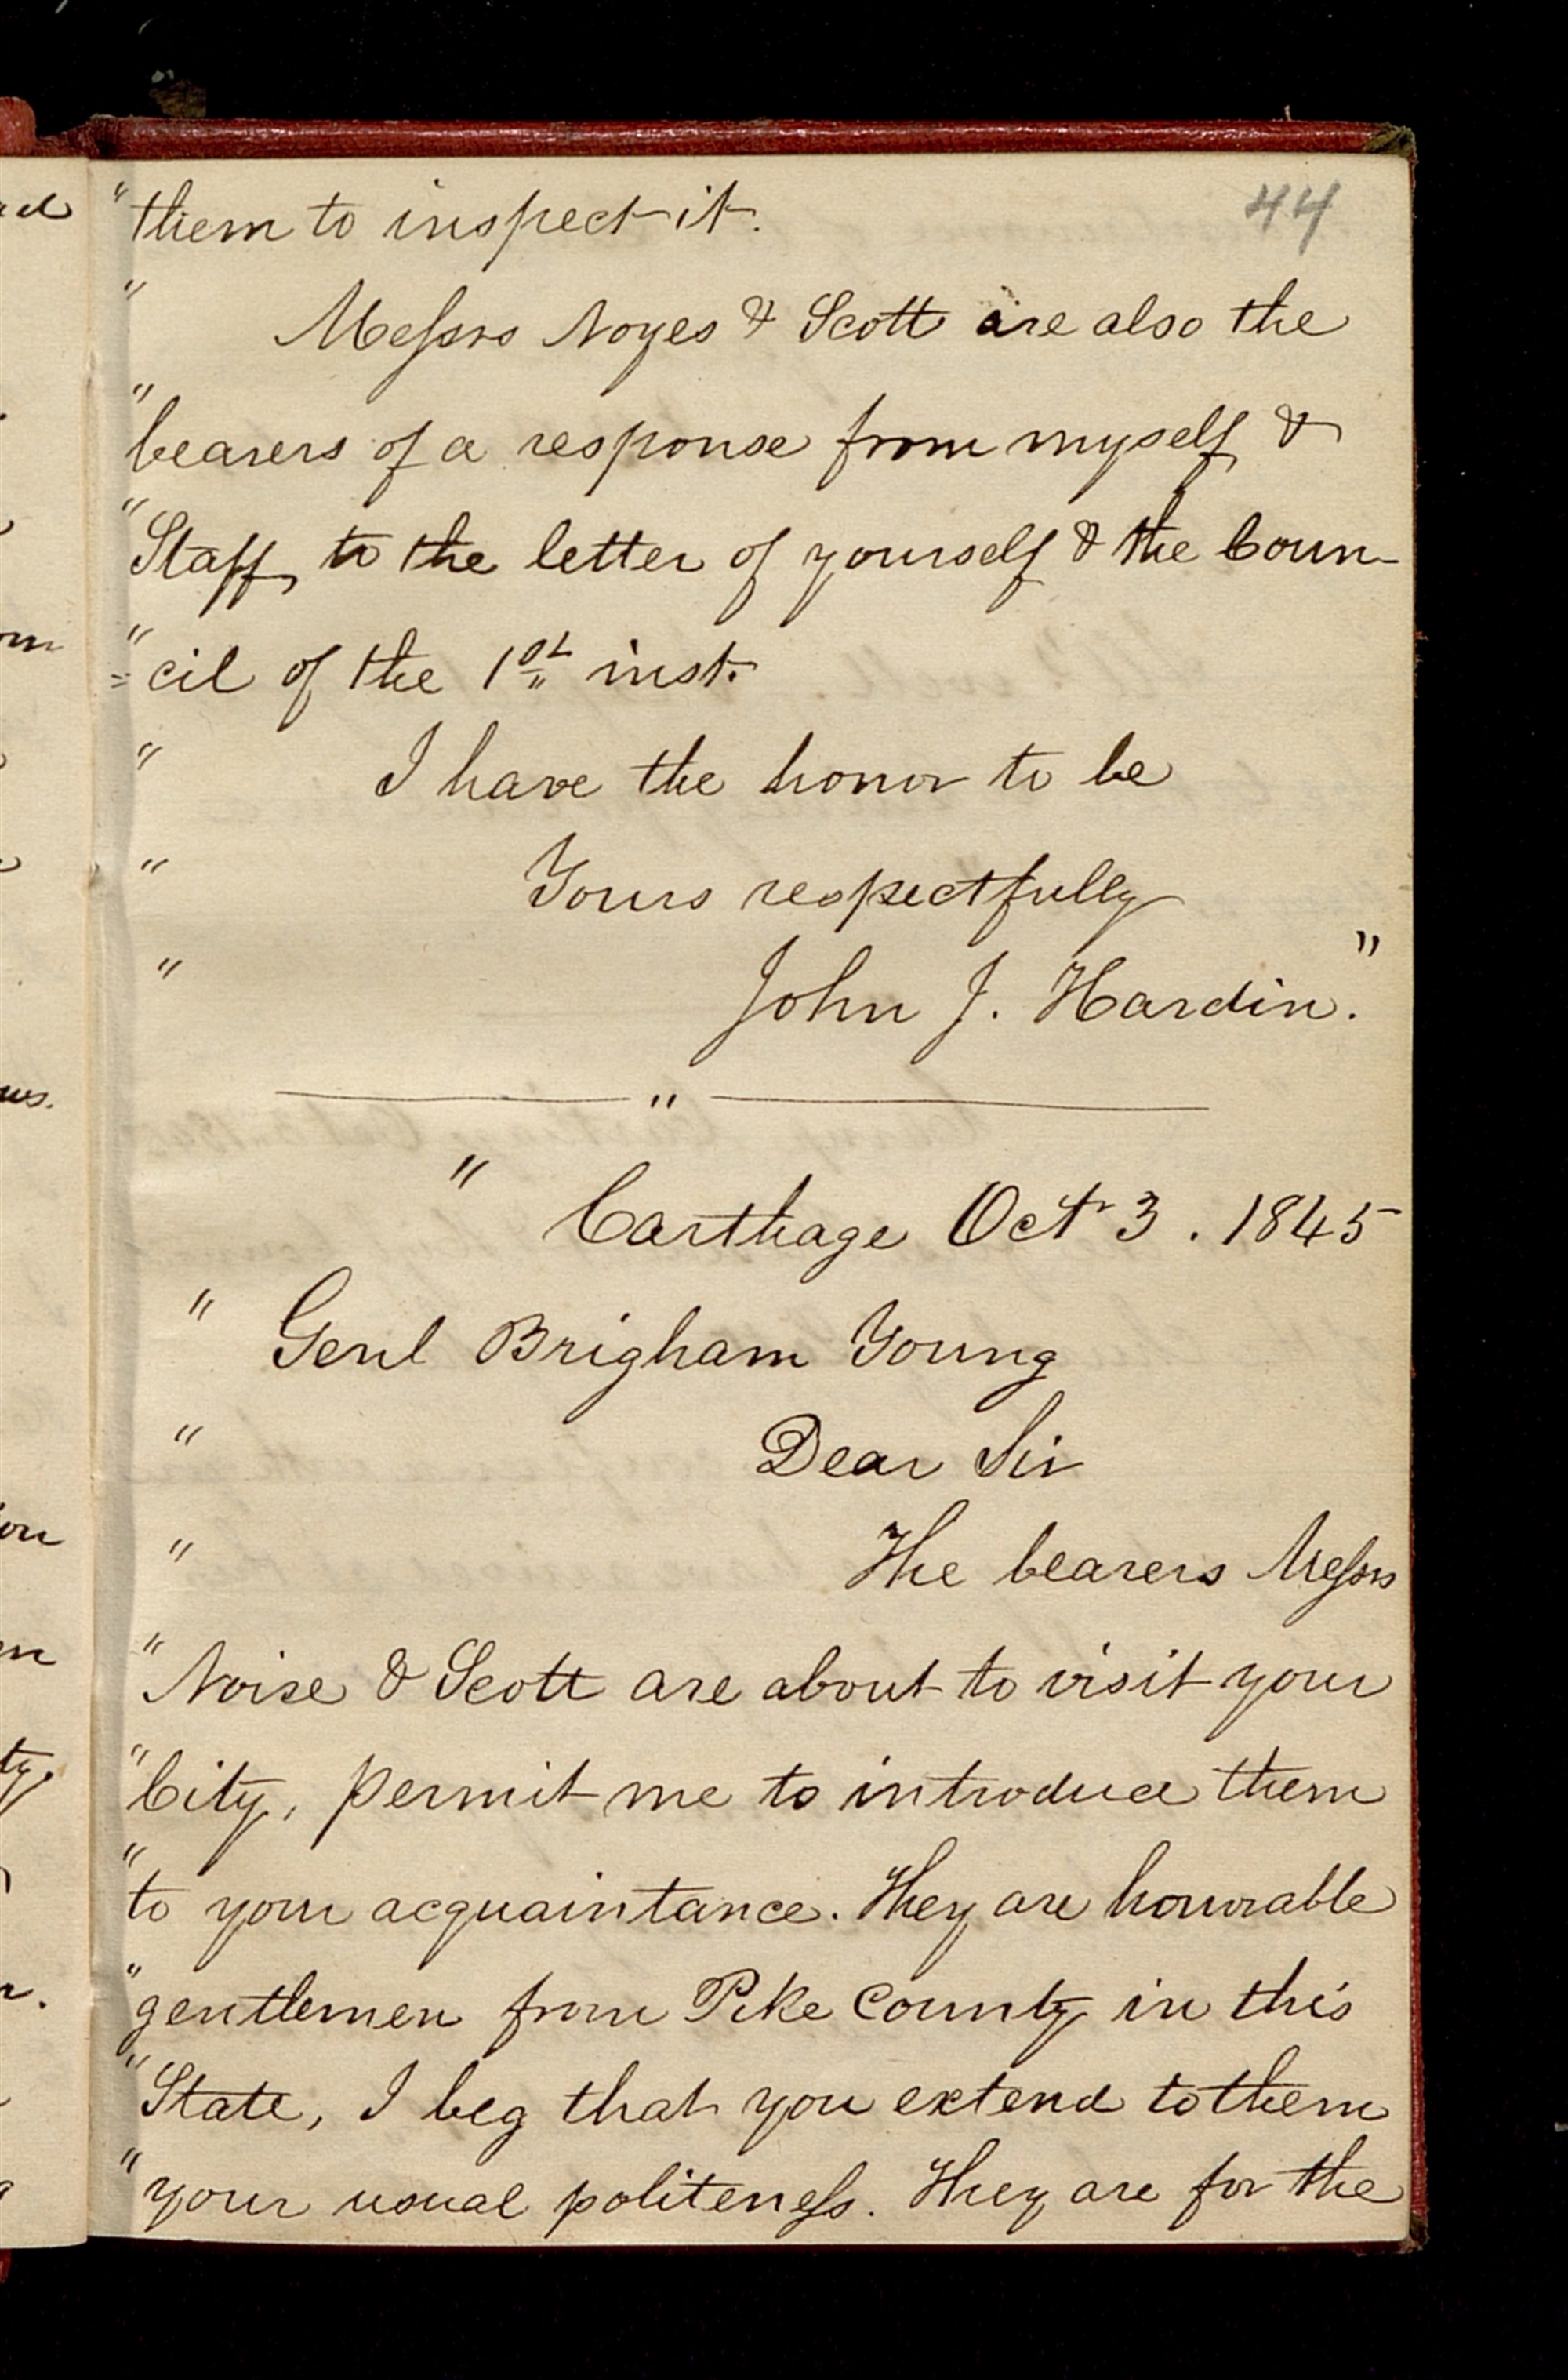 44
"them to inspect it.
" Messrs Noyes & Scott are also the
"bearers of a response from myself &
"Staff, to the letter of yourself & the Coun-
"=cil of the 1st inst.
" I have the honor to be
" Yours respectfully
" John J. Hardin."
"
" Carthage Oct 3. 1845
" Genl Brigham Young
" Dear Sir
" The bearers Messrs
"Noise & Scott are about to visit your
"City, permit me to introduce them
"to your acquaintance. They are honorable
"gentlemen from Pike County in this
"State, I beg that you extend to them
"your usual politeness. They are for the